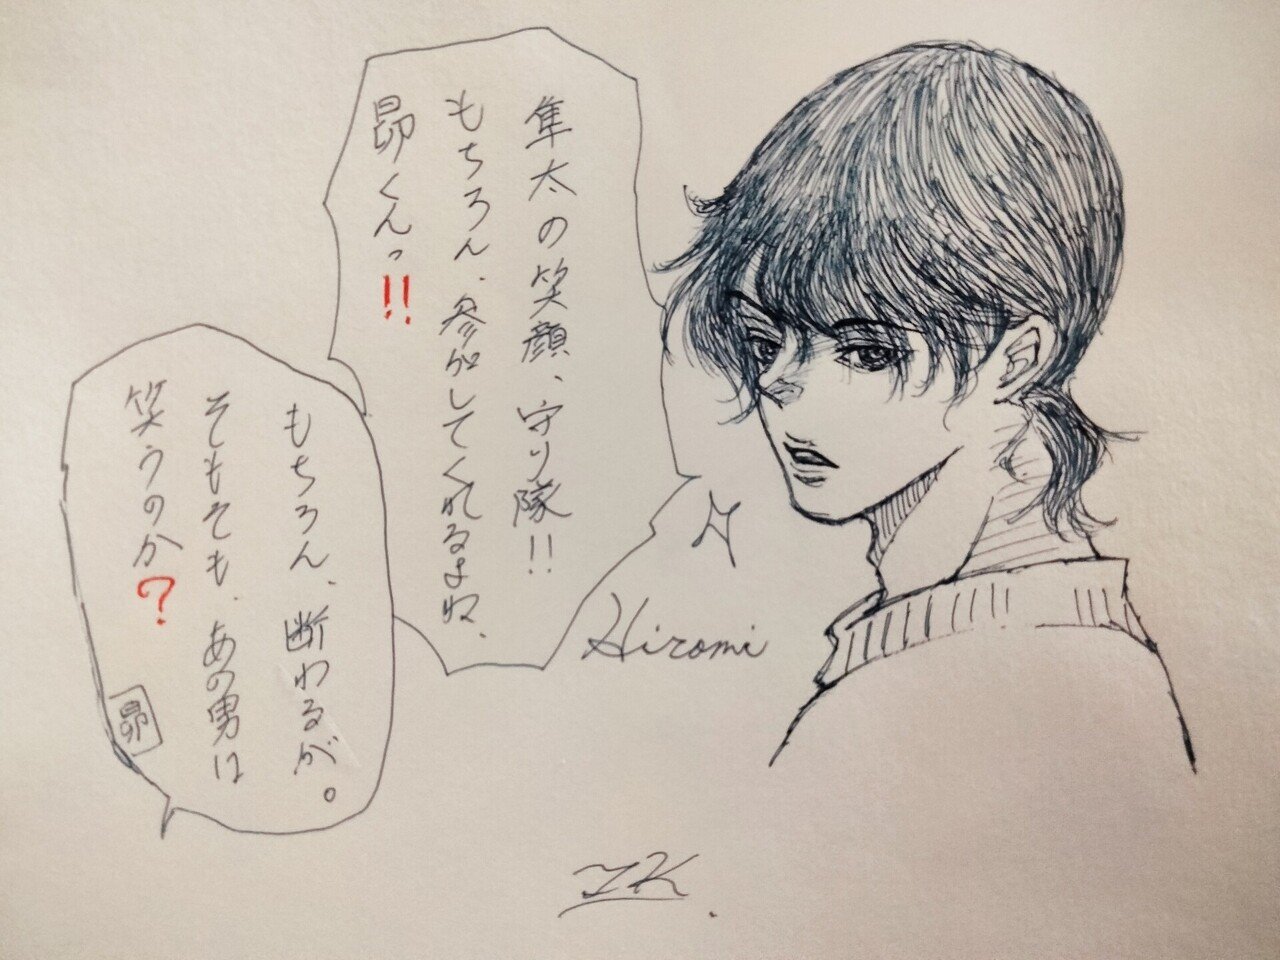 隼太の笑顔、守り隊!!
もちろん、参加してくれるよね、
昴くんっ!!
もちろん、断わるが。
そもそも、あの男は
笑うのか?
昴
Hiromi
IK.